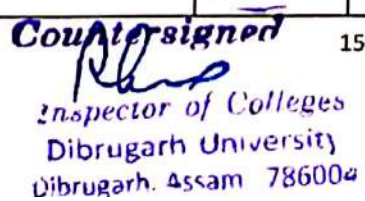 Countersigned 15
Inspector of Colleges
Dibrugarh University
Dibrugarh. Assam 786004